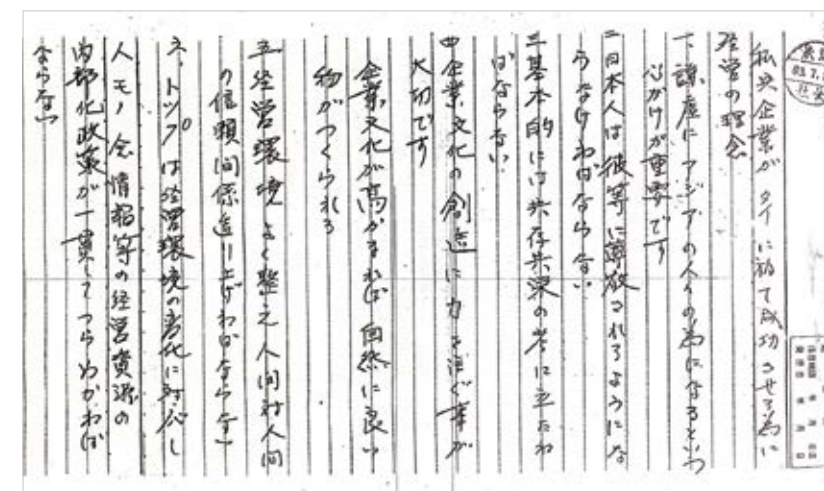 私共企業がタイに於て成功させる為に
経営の理念
一、謙虚にアジアの人々の為になるという
心がけが重要です
二日本人は彼等に尊敬されるようにな
らなければならない
三基本的には共存共栄の考に立たね
ばならない
四企業文化の創造に力を注ぐ事が
大切です
企業文化が高かまれば自然に良い
物がつくられる
五経営環境よく整え人間対人間
の信頼関係造り上げねばならない
六、トップは経営環境の変化に対応し
人モノ金情報等の経営資源の
内部化政策が一貫してつらぬかねば
ならない